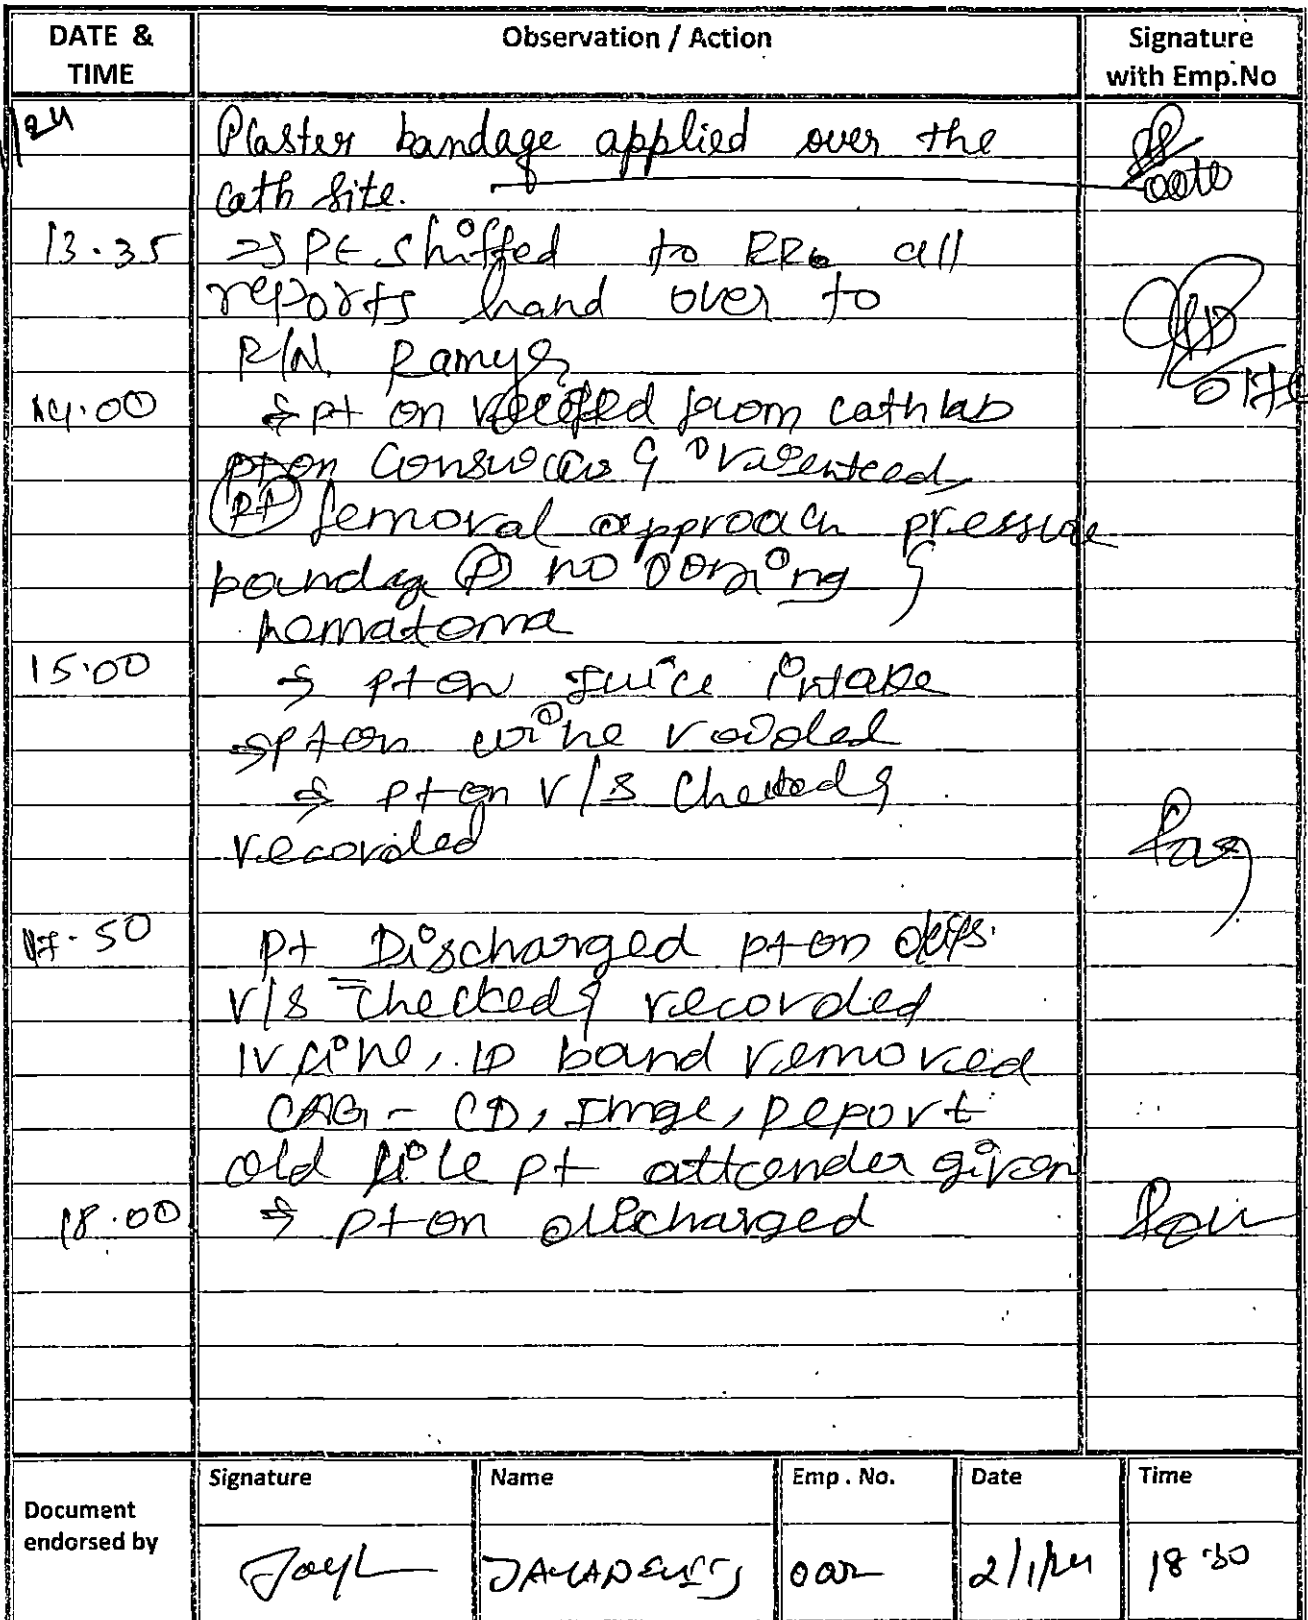 DATE & TIME
Observation / Action
Signature with Emp.No
Plaster bandage applied over the
cath site.
13.35 => Pt shifted to RR6 all
reports hand over to
R/N. Ramya
14.00 → pt on from cathlab
pt on
femoral approach pressure
bandage (P) no &
hematoma
15.00 → pt on juice intake
→ pt on urine voided
→ pt on v/s checked &
recorded
17.50 pt Discharged pt on
v/s checked & recorded
IV line, ID band removed
CAG - CD, Image, report
old file pt attender given
18.00 → pt on discharged
Document endorsed by
Signature
Name
Emp. No.
Date
Time
2/1/24
18.30